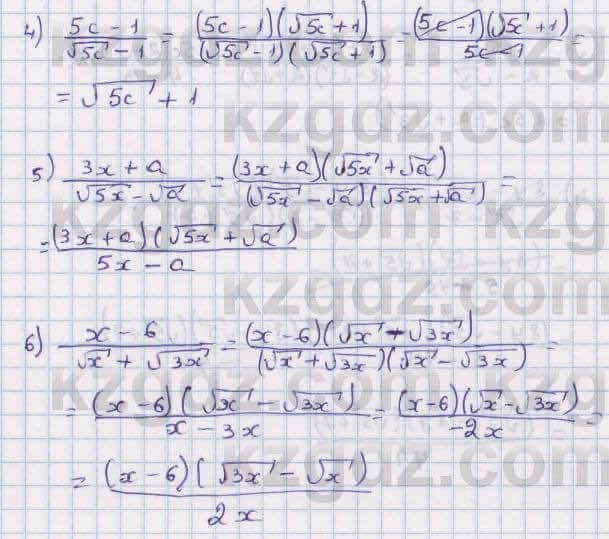 4) (5c - 1)/(√5c - 1) = ((5c - 1)(√5c + 1))/((√5c - 1)(√5c + 1)) = ((5c - 1)(√5c + 1))/(5c - 1) =
= √5c + 1
5) (3x + a)/(√5x - √a) = ((3x + a)(√5x + √a))/((√5x - √a)(√5x + √a)) =
= ((3x + a)(√5x + √a))/(5x - a)
6) (x - 6)/(√x + √3x) = ((x - 6)(√x - √3x))/((√x + √3x)(√x - √3x)) =
= ((x - 6)(√x - √3x))/(x - 3x) = ((x - 6)(√x - √3x))/(-2x) =
= ((x - 6)(√3x - √x))/(2x)
kzgdz.com